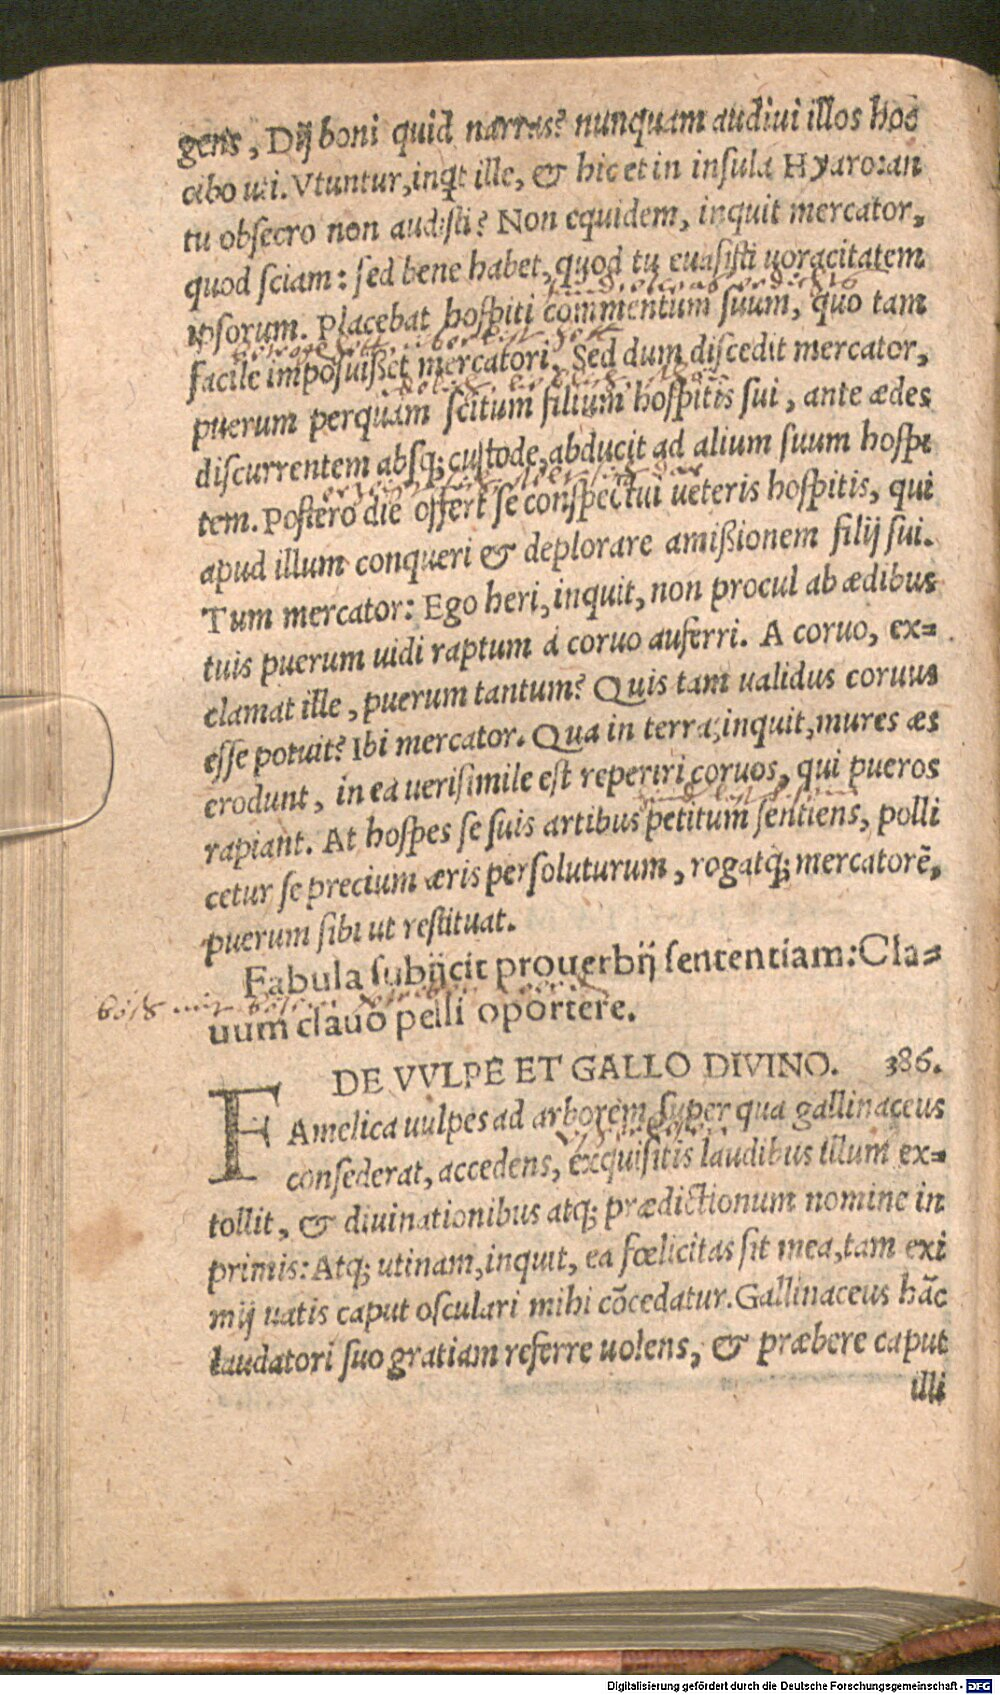 gens, Dij boni quid narras? nunquam audiui illos hoc
cibo uti. Vtuntur, inqt ille, & hic et in insula Hyaro: an
tu obsecro non audisti? Non equidem, inquit mercator,
quod sciam: sed bene habet, quod tu euasisti uoracitatem
ipsorum. Placebat hospiti commentum suum, quo tam
facile imposuißet mercatori. Sed dum discedit mercator,
puerum perquam scitum filium hospitis sui, ante ædes
discurrentem absq; custode, abducit ad alium suum hospi
tem. Postero die offert se conspectui ueteris hospitis, qui
apud illum conqueri & deplorare amißionem filij sui.
Tum mercator: Ego heri, inquit, non procul ab ædibus
tuis puerum uidi raptum à coruo auferri. A coruo, ex=
clamat ille, puerum tantum? Quis tam ualidus coruus
esse potuit? Ibi mercator. Qua in terra, inquit, mures æs
erodunt, in ea uerisimile est reperiri coruos, qui pueros
rapiant. At hospes se suis artibus petitum sentiens, polli
cetur se precium æris persoluturum, rogatq; mercatorẽ,
puerum sibi ut restituat.
Fabula subijcit prouerbij sententiam: Cla=
böß mit bösem
uum clauo pelli oportere.
DE VVLPE ET GALLO DIVINO. 386.
FAmelica uulpes ad arborem super qua gallinaceus
consederat, accedens, exquisitis laudibus illum ex=
tollit, & diuinationibus atq; prædictionum nomine in
primis: Atq; utinam, inquit, ea fœlicitas sit mea, tam exi
mij uatis caput osculari mihi cõcedatur. Gallinaceus hãc
laudatori suo gratiam referre uolens, & præbere caput
illi
Digitalisierung gefördert durch die Deutsche Forschungsgemeinschaft - DFG